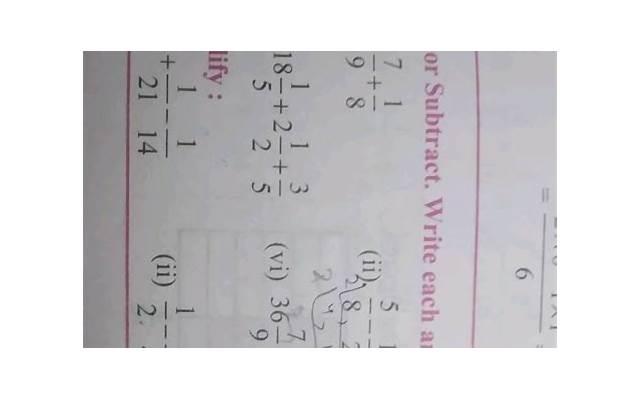 = 6
or Subtract. Write each
7/9 + 1/8 (ii) 5/8 -
18 1/5 + 2 1/2 + 3/5 (vi) 36 7/9
lify :
+ 1/21 - 1/14 (ii) 1/2 -